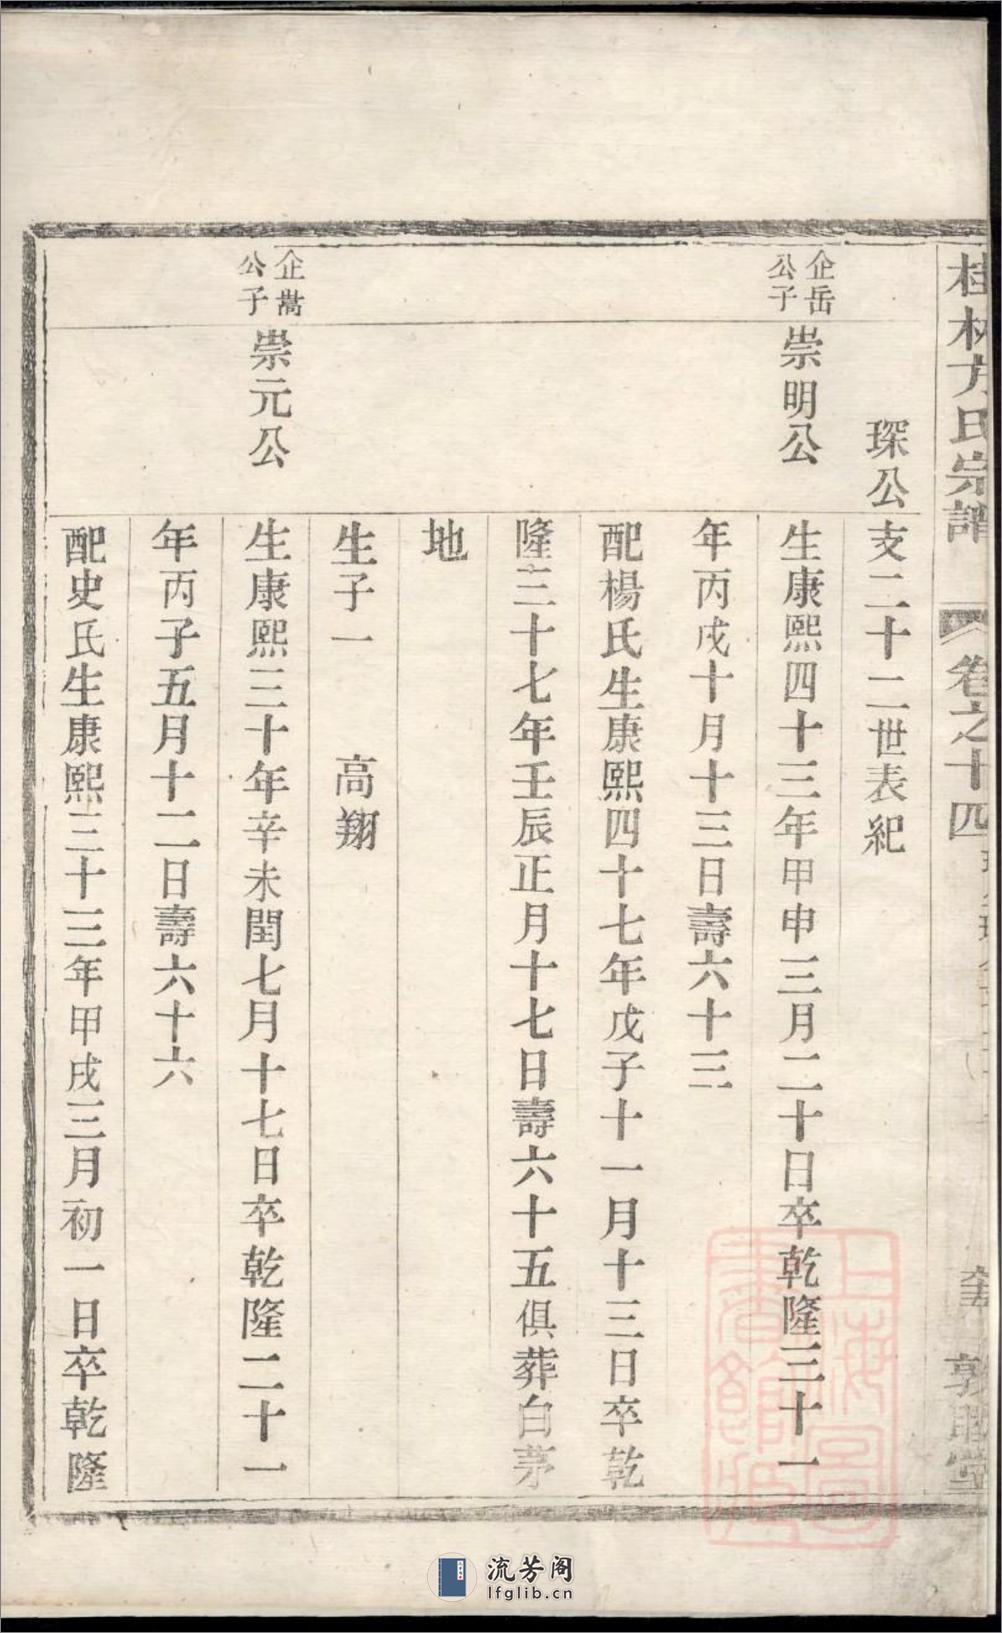 桂林方氏宗譜
卷之十四
敦
琛公支二十二世表紀
企岳
公子
崇明公
生康熙四十三年甲申三月二十日卒乾隆三十一
年丙戌十月十三日壽六十三
配楊氏生康熙四十七年戊子十一月十三日卒乾
隆三十七年壬辰正月十七日壽六十五俱葬白茅
地
生子一　高翔
企嵩
公子
崇元公
生康熙三十年辛未閏七月十七日卒乾隆二十一
年丙子五月十二日壽六十六
配史氏生康熙三十三年甲戌三月初一日卒乾隆
上海圖
書館藏
流芳阁
lfglib.cn